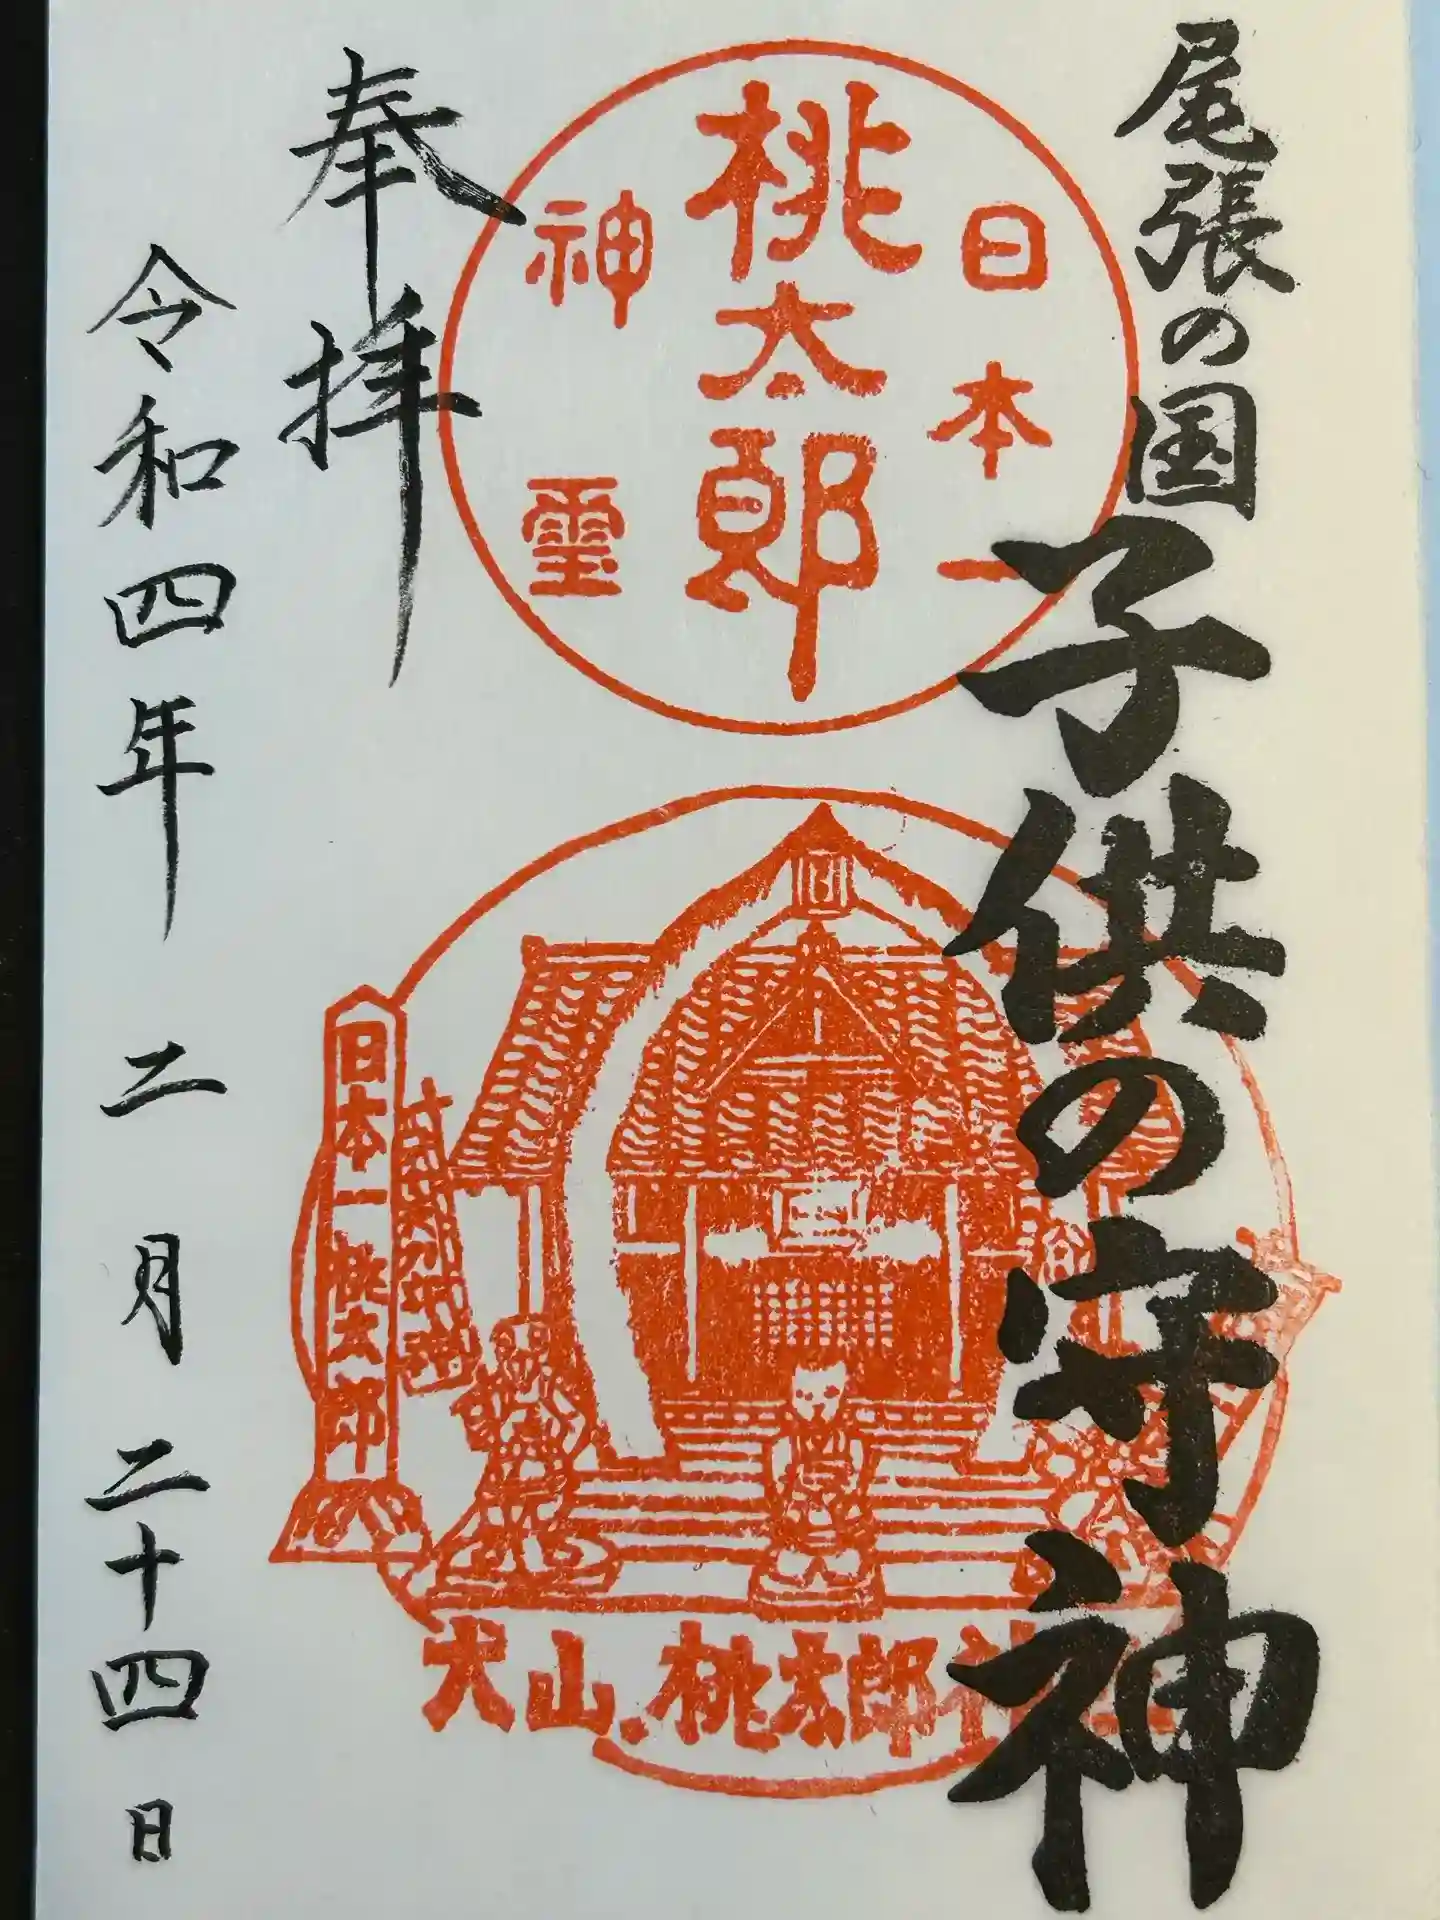 尾張の国
子供の守神
日本一
桃太郎
神璽
日本一桃太郎
犬山.桃太郎神
奉拝
令和四年二月二十四日